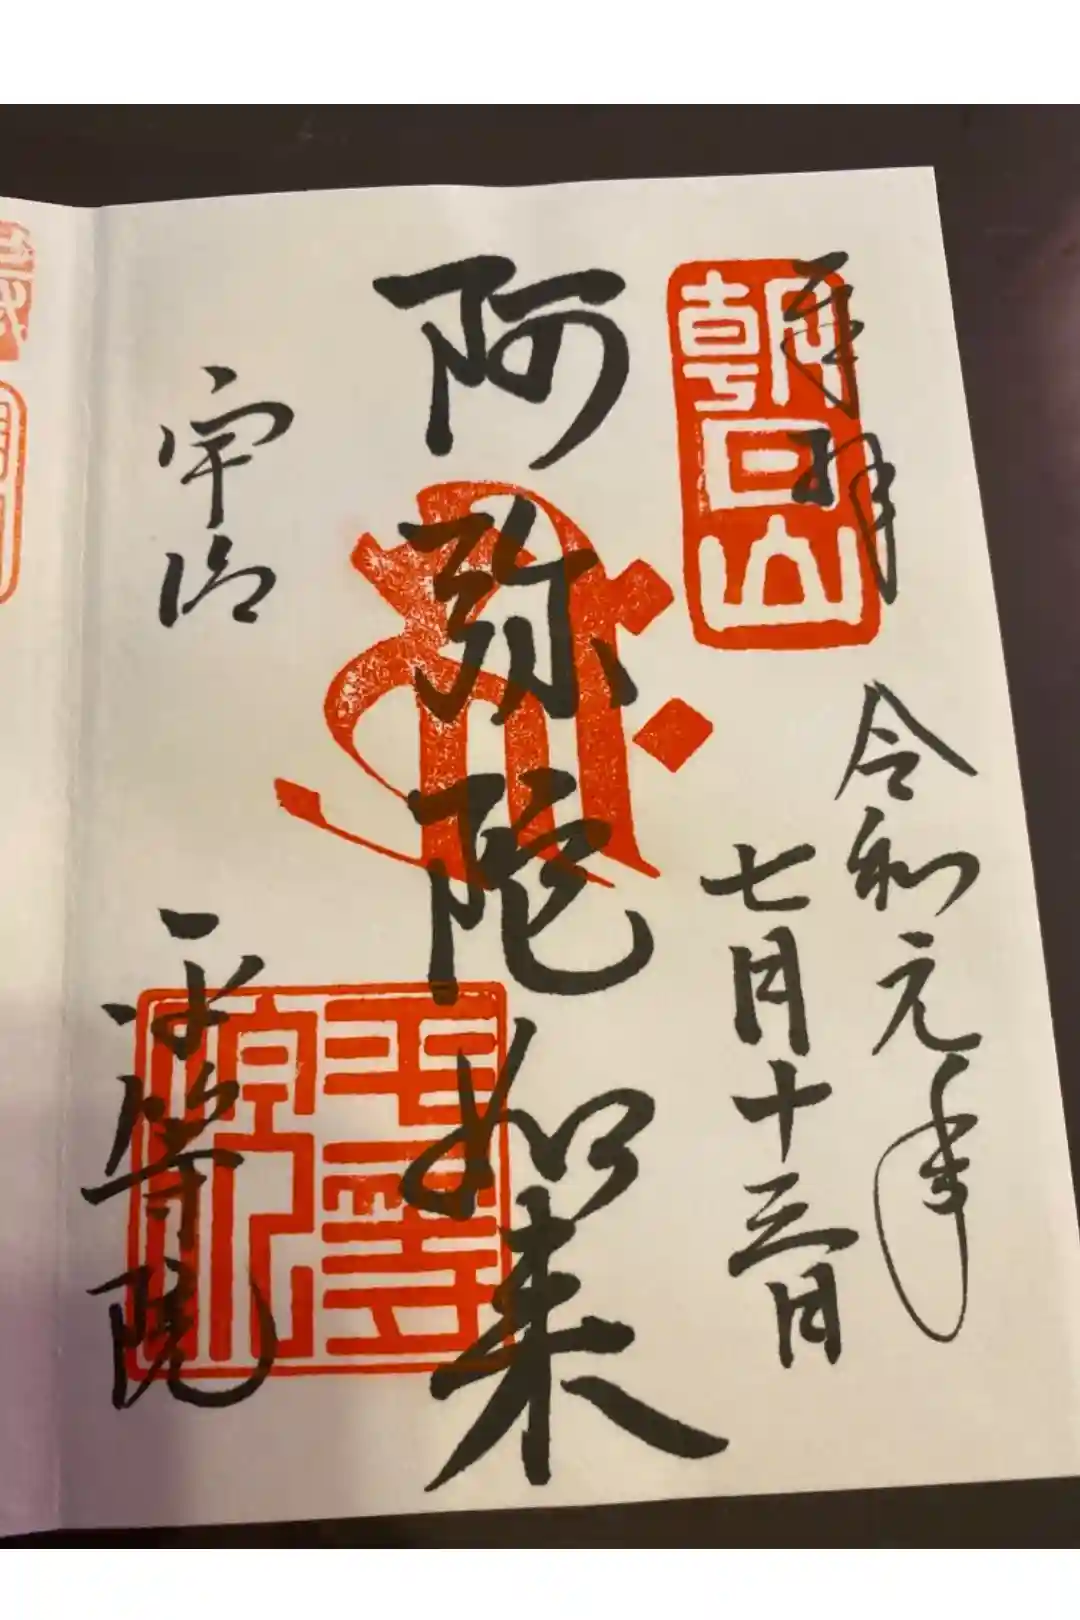 奉拝
朝日山
令和元年
七月十三日
阿弥陀如来
平等院
宇治
平等院